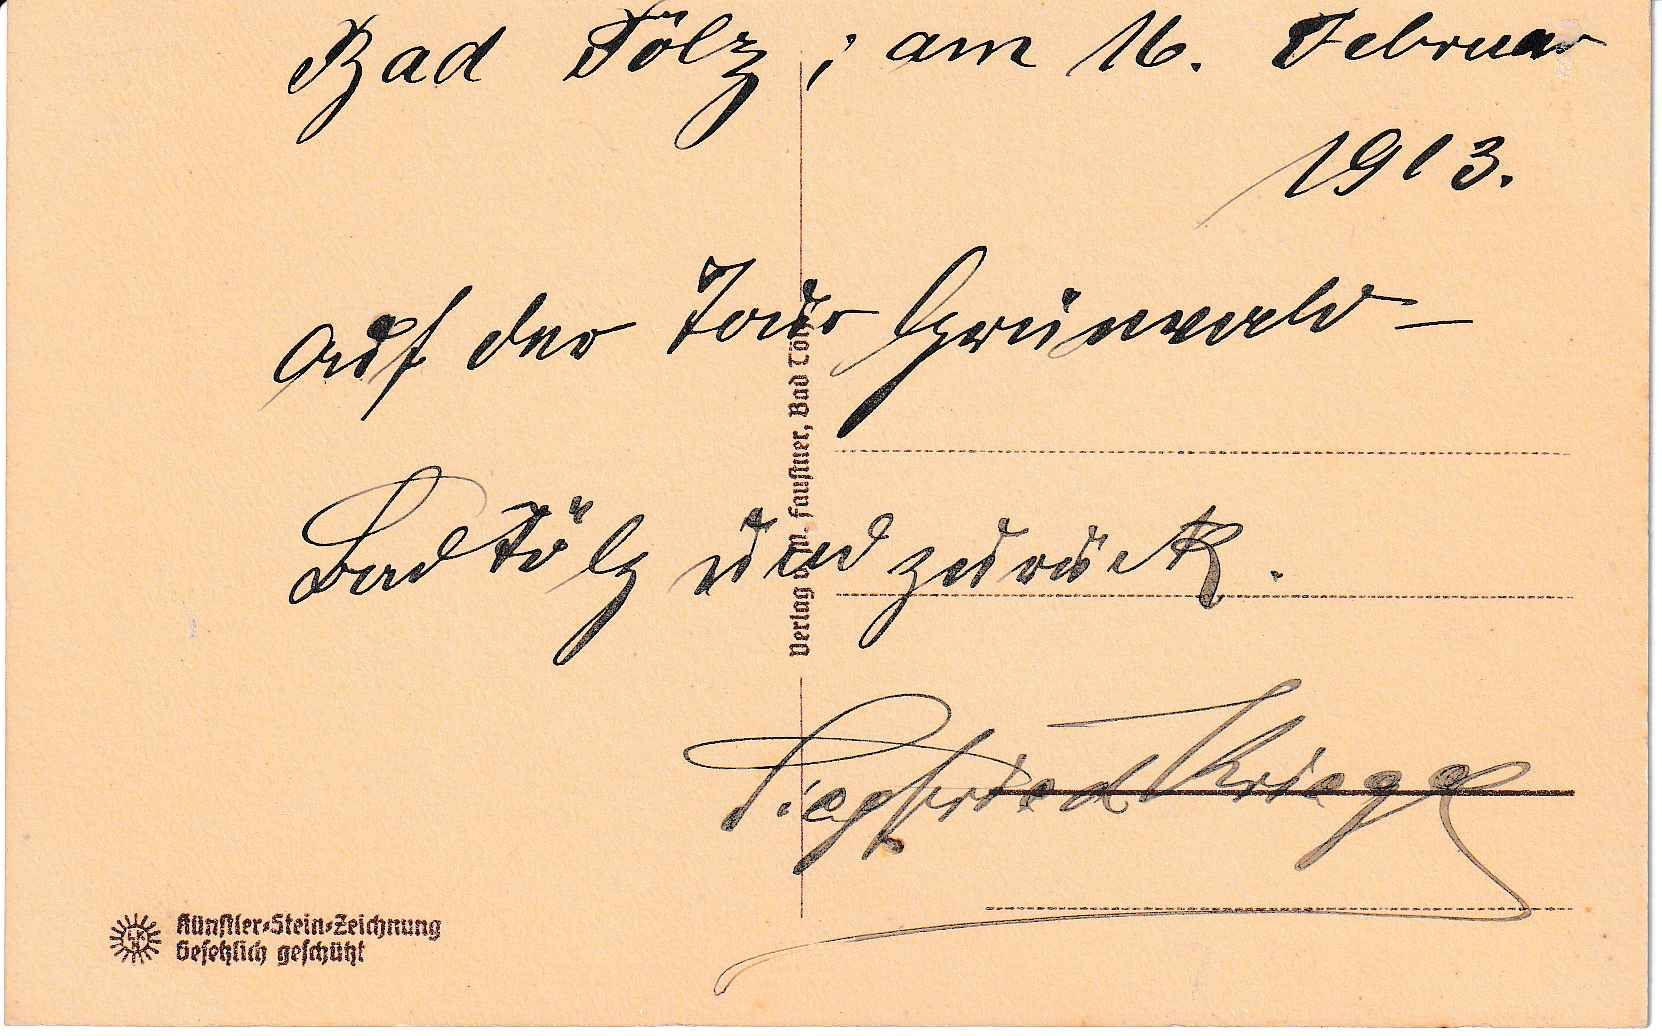 Bad Tölz, am 16. Februar
1913.
auf der Tour Grünwald –
Bad Tölz und zurück.
Siegfried Kriege
Verlag M. Faustner, Bad Tölz
LKM
Künstler-Stein-Zeichnung
Gesetzlich geschützt